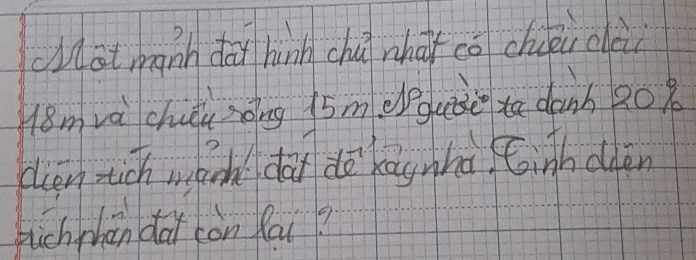 Một mảnh đất hình chữ nhật có chiều dài
18m và chiều rộng 15m. Người ta dành 20%
diện tích mảnh đất để xây nhà. Tính diện
tích phần đất còn lại?